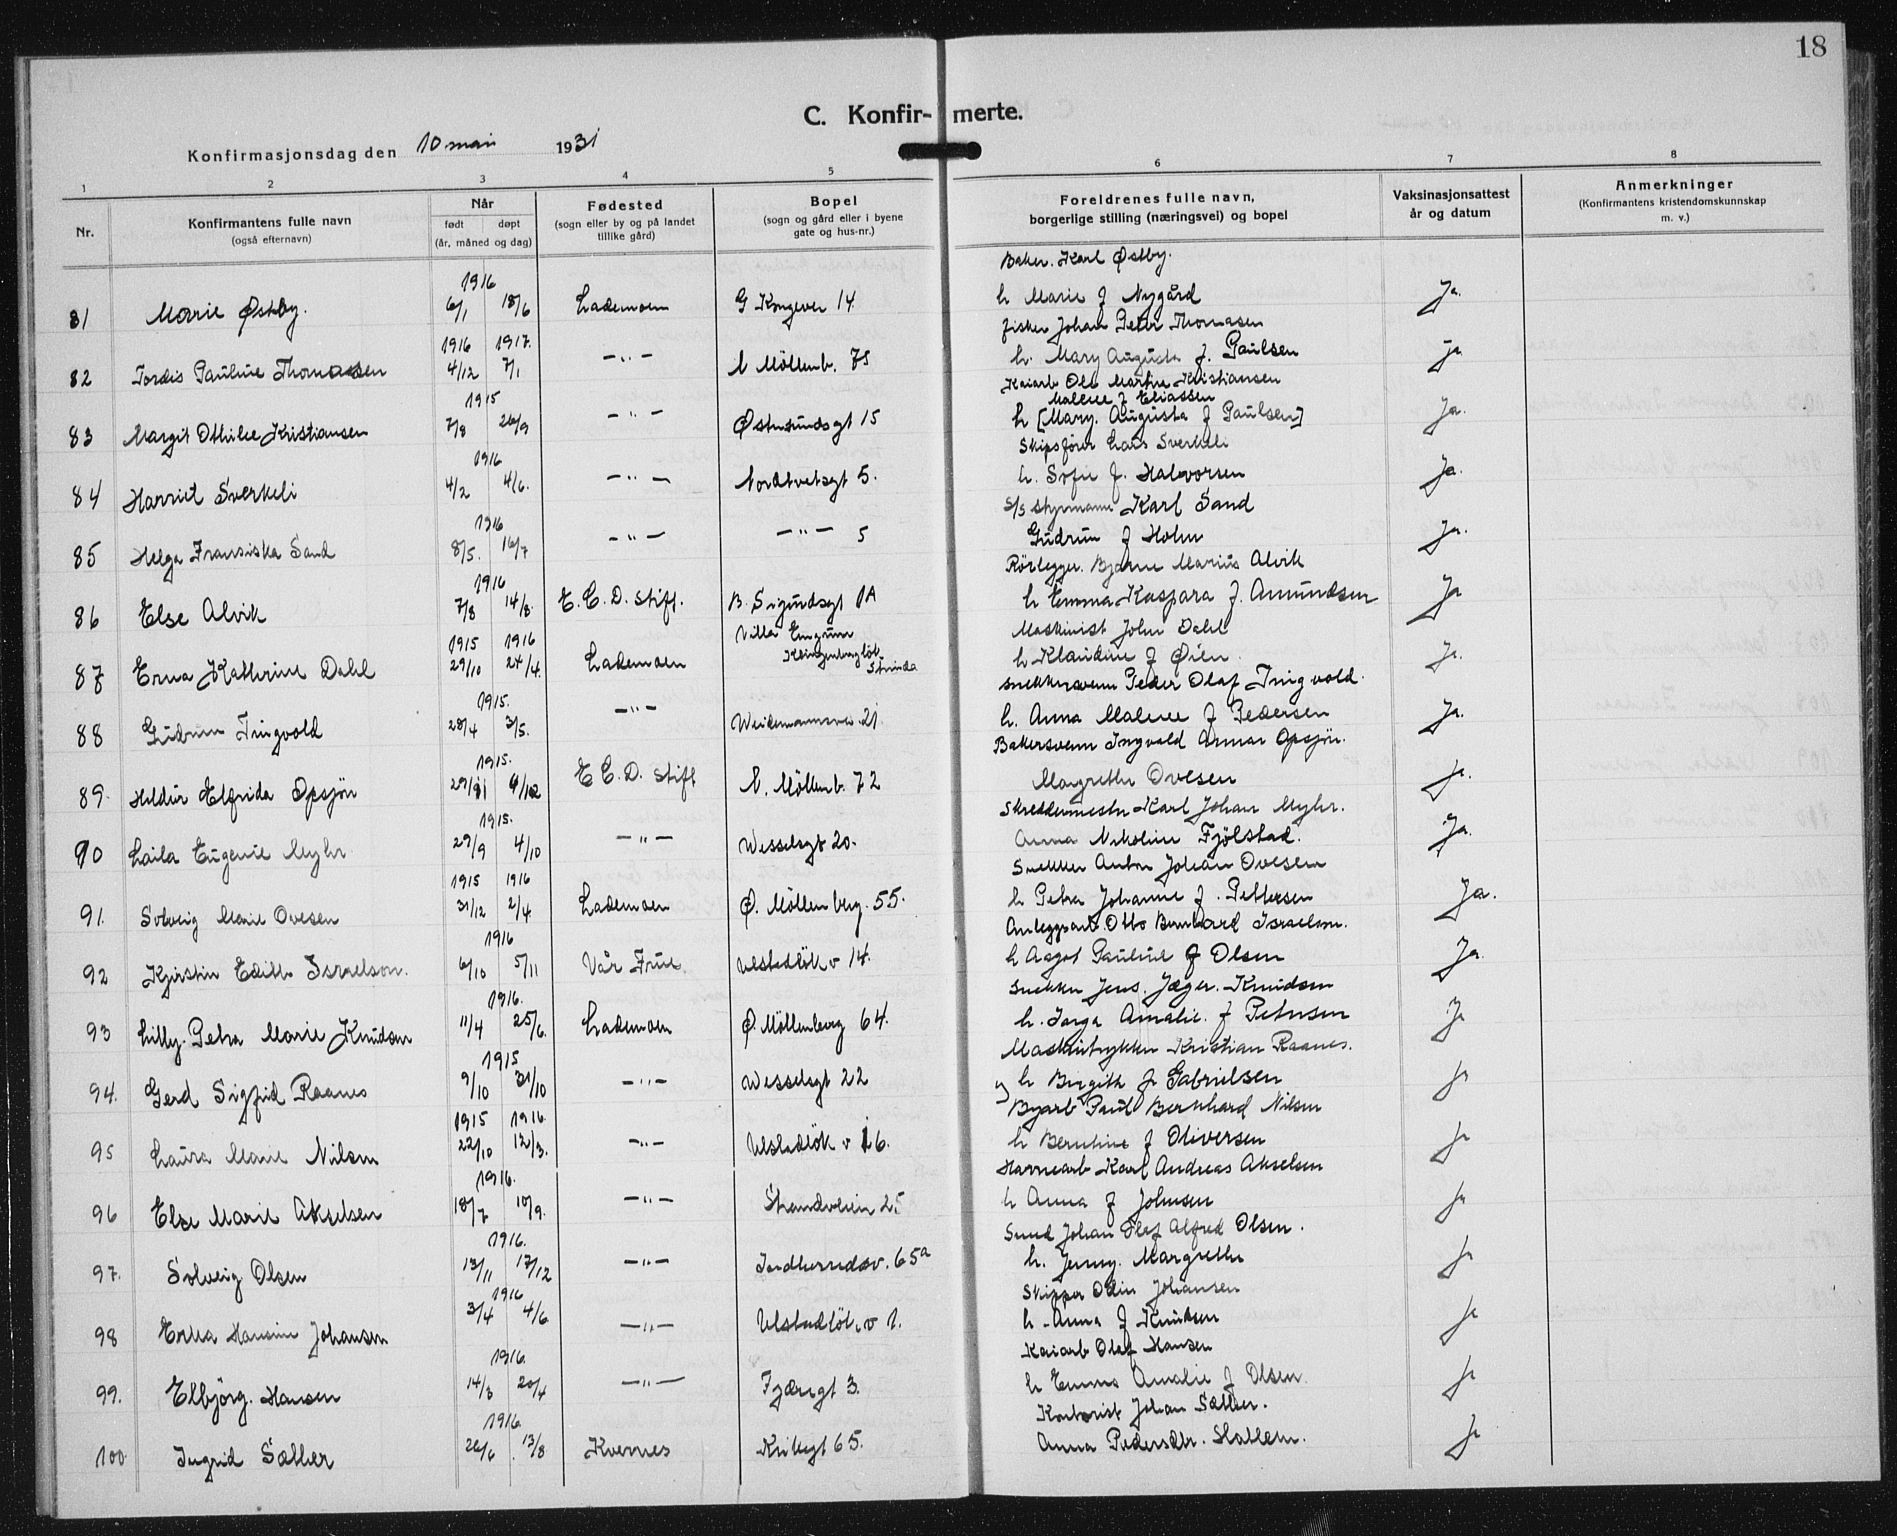 18
C. Konfir- merte.
Konfirmasjonsdag den 10 mai 1931
1 2 3 4 5 6 7 8
Nr.
Konfirmantens fulle navn
(også efternavn)
Når
født døpt
(år, måned og dag)
Fødested
(sogn eller by og på landet
tillike gård)
Bopel
(sogn og gård eller i byene
gate og hus-nr.)
Foreldrenes fulle navn,
borgerlige stilling (næringsvei) og bopel
Vaksinasjonsattest
år og datum
Anmerkninger
(Konfirmantens kristendomskunnskap
m. v.)
1916 Baker. Karl Østby.
81 Marie Østby. 6/1 18/6 Lademoen G Kongevei 14 h Marie f Nygård Ja.
1916 1917. fisker Johan Peter Thomasen
82 Tordis Pauline Thomasen 4/12 7/1 —"— N Möllenb. 75 h. Mary Augusta f. Paulsen ja
1915 Kaiarb Ole Martin Kristiansen
Malene f Eliassen
83 Margit Othilie Kristiansen 7/8 26/9 —"— Østersundsgt 15 h [Mary. Augusta f Paulsen] Ja.
1916 Skipsfører Lars Sverkeli
84 Harriet Sverkeli 4/2 4/6. —"— Nordtvetsgt 5. h. Sofie f. Halvorsen Ja.
1916 S/S styrmann Karl Sand
85 Helga Fransiska Sand 8/5. 16/7 —"— —"— 5 Gudrun f Holm Ja.
1916 Rörlegger. Bjarne Marius Alvik
86 Else Alvik 7/8 14/8. E. C. D. Stift. B. Sigurdsgt 1A h Emma Kaspara f. Amundsen Ja
1915 1916 Villa Maskinist John Dahl
87 Erna Kathrine Dahl 29/10 24/4. Lademoen Strinda h Klaudine f Øien. Ja.
1915. Snekkersvenn Peder Olaf Tingvold.
88 Gudrun Tingvold 28/4 3/5. —"— Weidemannsvei 21 h. Anna Malene f Pedersen Ja.
1915. Bakersvenn Ingvald Annar Opsjön.
89. Hildur Elfrida Opsjön 29/11 6/12 E C. D. Stift N. Möllenb. 72 Margrethe Ovesen Ja.
1915. Skreddermester Karl Johan Myhr.
90 Laila Eugenie Myhr 29/9 4/10 —"— Wesselsgt 20. Anna Nikoline Fjölstad. Ja.
1915 1916 Snekker Anton Johan Ovesen
91. Solveig Marie Ovesen 31/12 2/4 Lademoen Ø. Möllenberg. 55. h Petra Johanne f. Pettersen Ja.
1916 Anleggsarb. Otto Bernhard Israelson.
92 Kjerstin Edith Israelson. 6/10 5/11 Vår Frue. Ulstadlök v 14. h Aagot Pauline f Olsen Ja
1916. Snekker Jens. Jæger. Knudsen
93 Lilly. Petra Marie Knudsen 11/4 25/6. Lademoen Ø. Möllenberg 64. h. Inga Amalie. f Petersen Ja
1915 Maskintrykker Kristian Raanes.
94. Gerd Sigfrid Raanes 9/10 31/10 —"— Wesselsgt 22 h Birgith f. Gabrielsen ja
1915 1916. Byarb Paul Bernhard Nilsen
95 Laura Marie Nilsen 22/10 12/3. —"— Ulstadlök v 16. h Berntine f Oliversen ja
1916. Havnearb Karl Andreas Akselsen
96 Else Marie Akselsen 18/7 10/9. —"— Strandveien 25 h Anna f Johnsen ja
1916. Smed Johan Olaf Alfred Olsen.
97. Solveig Olsen 13/11 17/12 —"— Indherredsv. 65a h. Jenny. Margrethe ja
1916 Skipper Odin Johansen
98 Erna Hansine Johansen 3/4 4/6 —"— Ulstadlök. v 1. h. Anna f Knudsen ja
1916. Kaiarb Olaf Hansen
99. Elbjörg. Hansen 14/3 20/4 —"— Fjæregt 3. h Emma Amalie f Olsen. ja
1916. Kontorist Johan Sæther.
100 Ingrid Sæther 26/6 13/8 Kvernes Kirkegt 65. Anna Pedersdtr. Hallem. ja